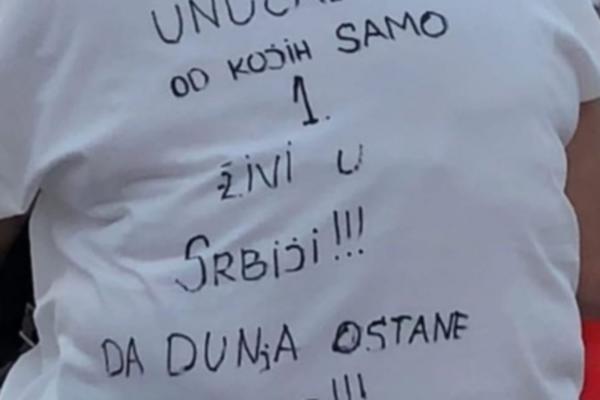 OD KOJIH SAMO
1.
ŽIVI U
SRBIJI!!!
DA DUNJA OSTANE
!!!